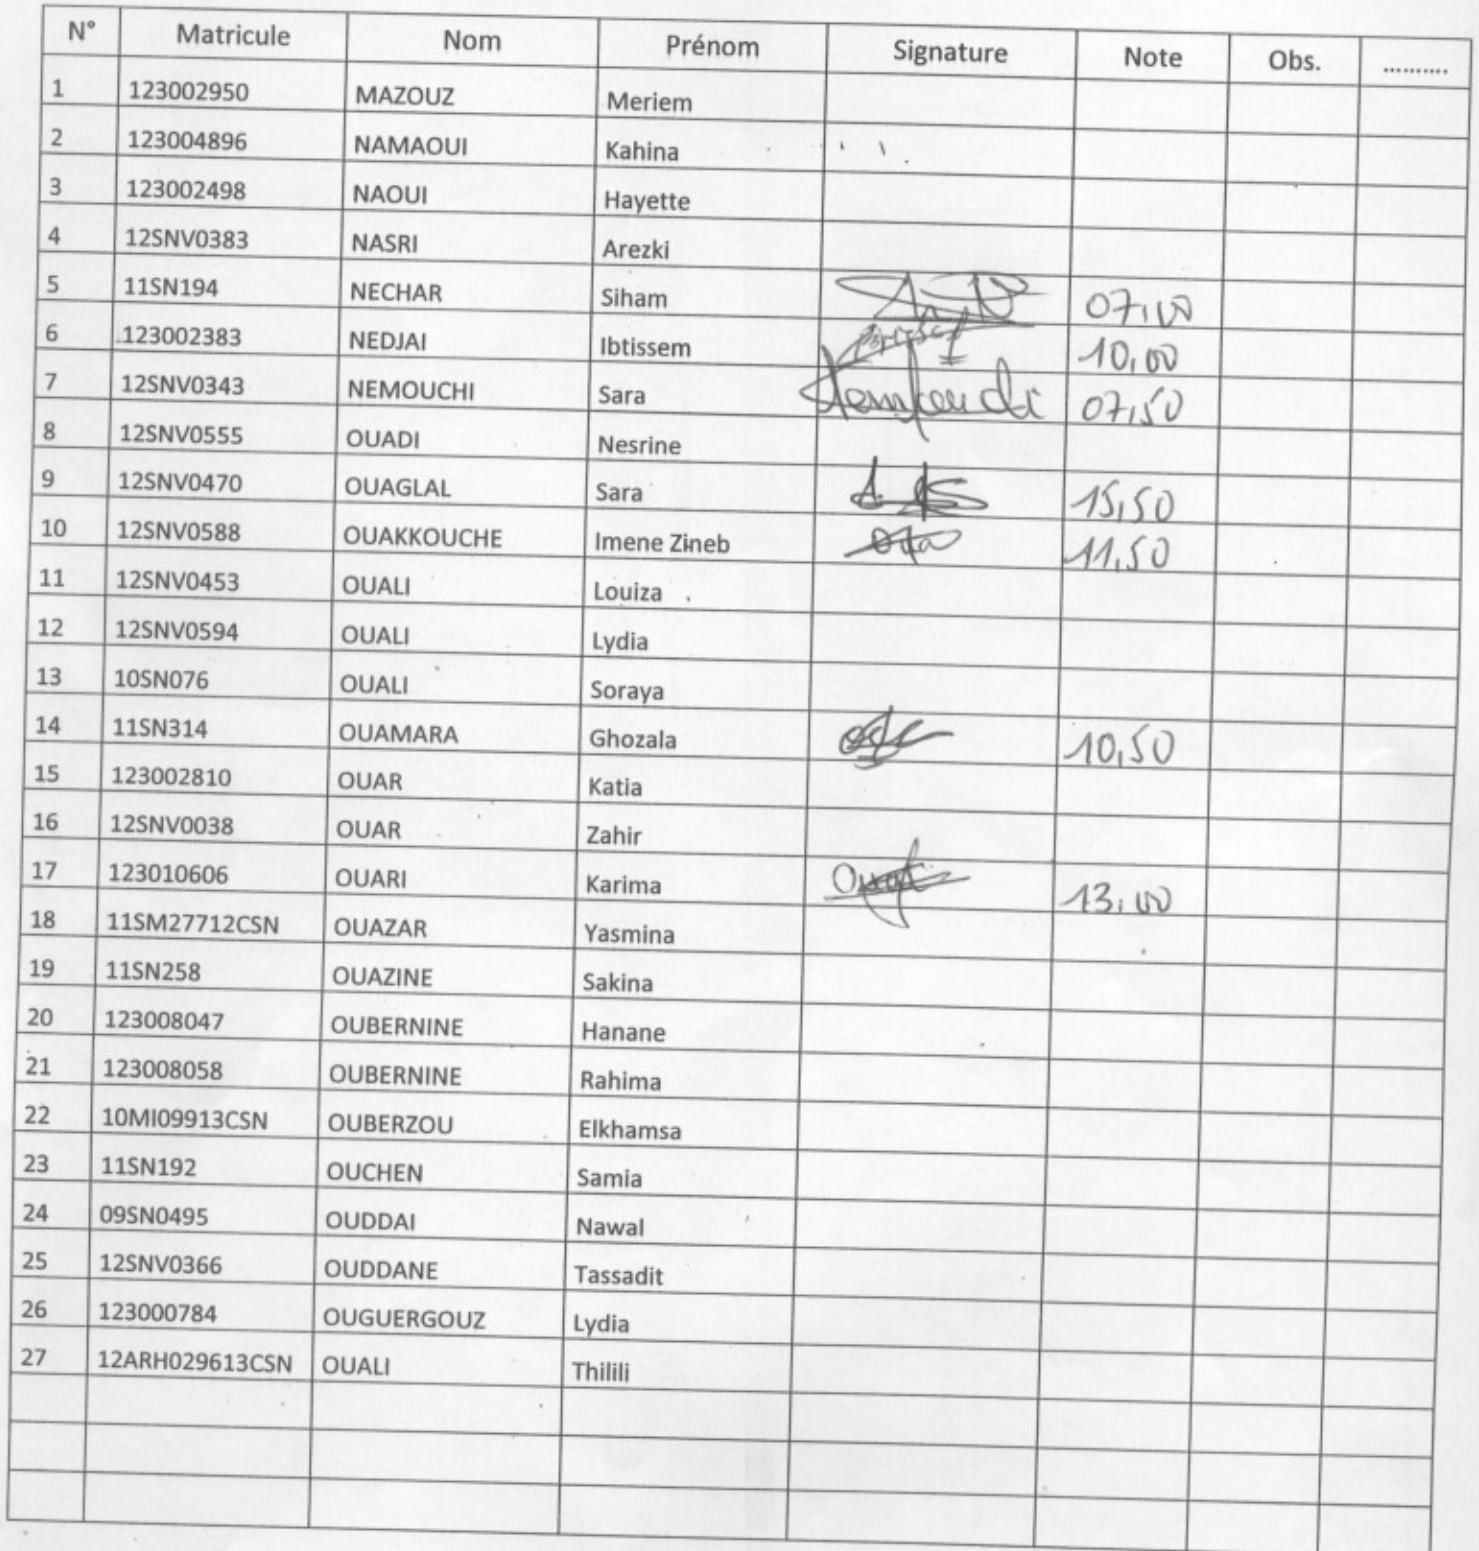 N° Matricule Nom Prénom Signature Note Obs. ..........
1 123002950 MAZOUZ Meriem
2 123004896 NAMAOUI Kahina
3 123002498 NAOUI Hayette
4 12SNV0383 NASRI Arezki
5 11SN194 NECHAR Siham 07,00
6 123002383 NEDJAI Ibtissem 10,00
7 12SNV0343 NEMOUCHI Sara 07,50
8 12SNV0555 OUADI Nesrine
9 12SNV0470 OUAGLAL Sara 15,50
10 12SNV0588 OUAKKOUCHE Imene Zineb 11,50
11 12SNV0453 OUALI Louiza
12 12SNV0594 OUALI Lydia
13 10SN076 OUALI Soraya
14 11SN314 OUAMARA Ghozala 10,50
15 123002810 OUAR Katia
16 12SNV0038 OUAR Zahir
17 123010606 OUARI Karima 13,00
18 11SM27712CSN OUAZAR Yasmina
19 11SN258 OUAZINE Sakina
20 123008047 OUBERNINE Hanane
21 123008058 OUBERNINE Rahima
22 10MI09913CSN OUBERZOU Elkhamsa
23 11SN192 OUCHEN Samia
24 09SN0495 OUDDAI Nawal
25 12SNV0366 OUDDANE Tassadit
26 123000784 OUGUERGOUZ Lydia
27 12ARH029613CSN OUALI Thilili